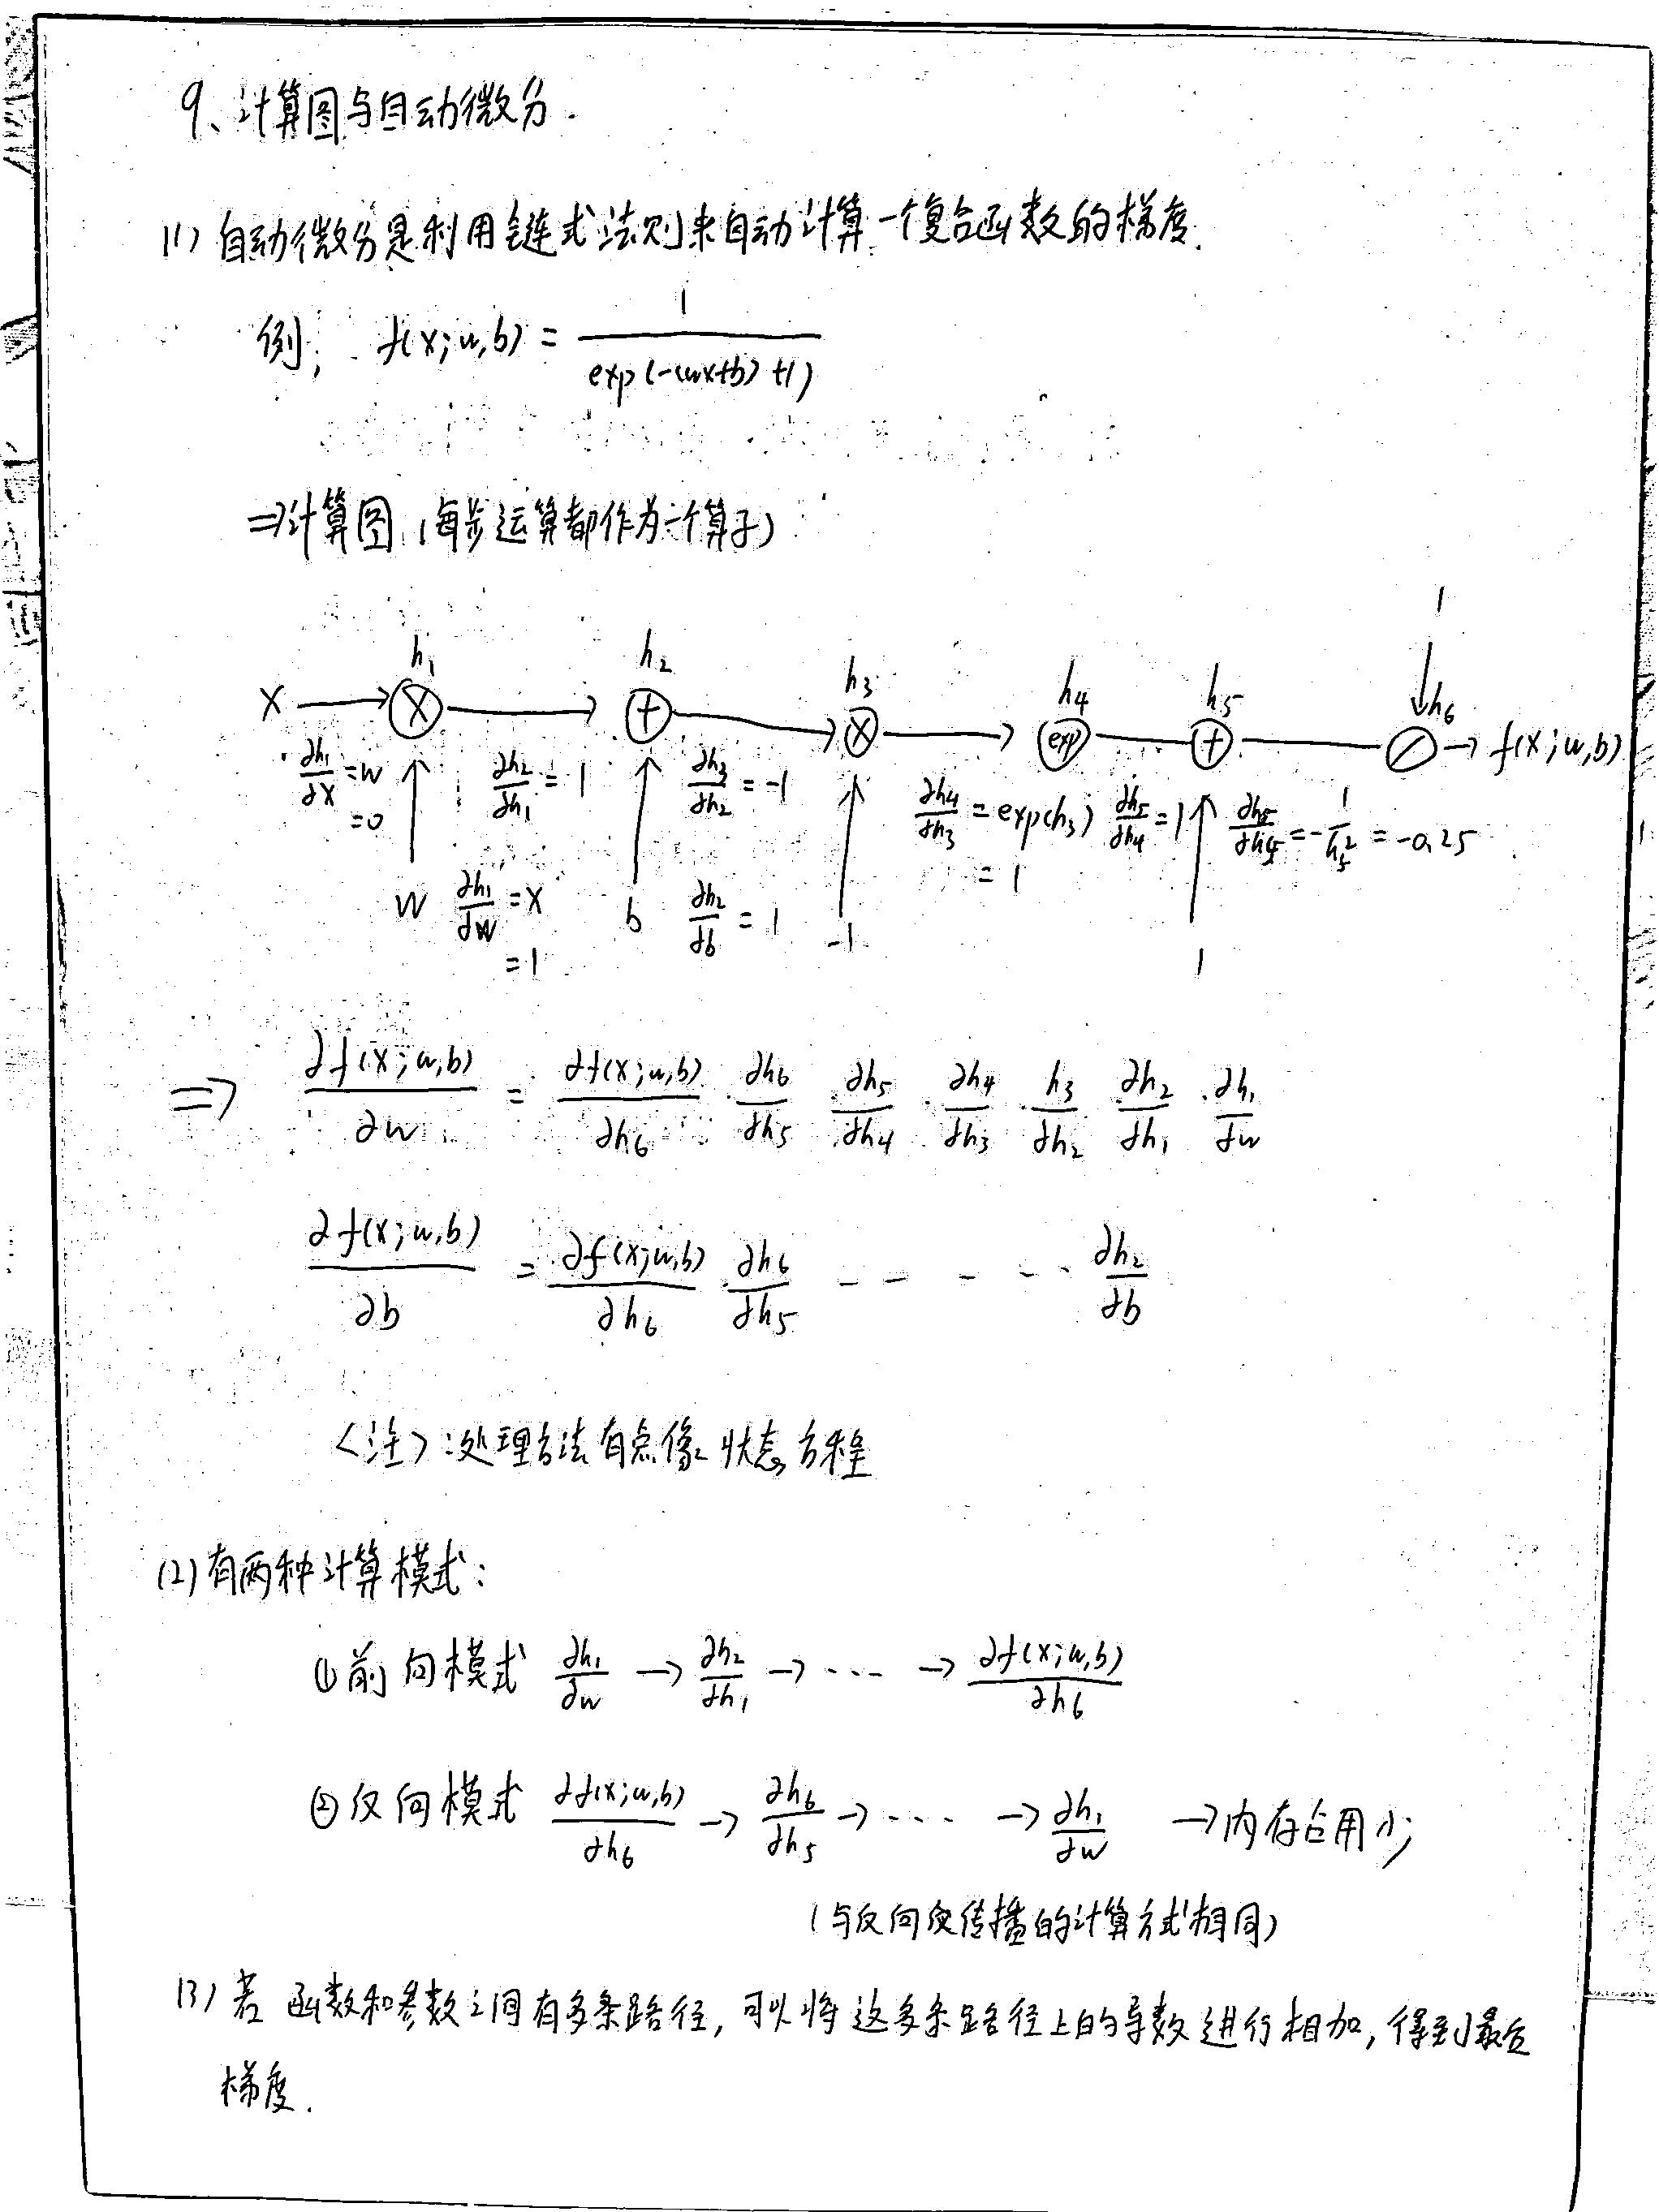 9、计算图与自动微分.
(1) 自动微分是利用链式法则来自动计算一个复合函数的梯度.
例: f(x;w,b) = 1 / exp(-(wx+b)+1)
⇒计算图 (每步运算都作为一个算子)
1
h₁ h₂ h₃ h₄ h₅ h₆
x → ⊗ → ⊕ → ⊗ → exp → ⊕ → ⊘ → f(x;w,b)
∂h₁/∂x = w = 0 ∂h₂/∂h₁ = 1 ∂h₃/∂h₂ = -1 ∂h₄/∂h₃ = exp(h₃) = 1 ∂h₅/∂h₄ = 1 ∂h₆/∂h₅ = -1/h₅² = -0.25
w ∂h₁/∂w = x = 1 b ∂h₂/∂b = 1 -1 1
⇒ ∂f(x;w,b)/∂w = ∂f(x;w,b)/∂h₆ · ∂h₆/∂h₅ · ∂h₅/∂h₄ · ∂h₄/∂h₃ · h₃/∂h₂ · ∂h₂/∂h₁ · ∂h₁/∂w
∂f(x;w,b)/∂b = ∂f(x;w,b)/∂h₆ · ∂h₆/∂h₅ - - - - · ∂h₂/∂b
<注>:处理方法有点像状态方程
(2) 有两种计算模式:
①前向模式 ∂h₁/∂w → ∂h₂/∂h₁ → ···· → ∂f(x;w,b)/∂h₆
②反向模式 ∂f(x;w,b)/∂h₆ → ∂h₆/∂h₅ → ···· → ∂h₁/∂w → 内存占用小;
(与反向传播的计算方式相同)
(3) 若函数和参数之间有多条路径, 可以将这多条路径上的导数进行相加, 得到最后
梯度.